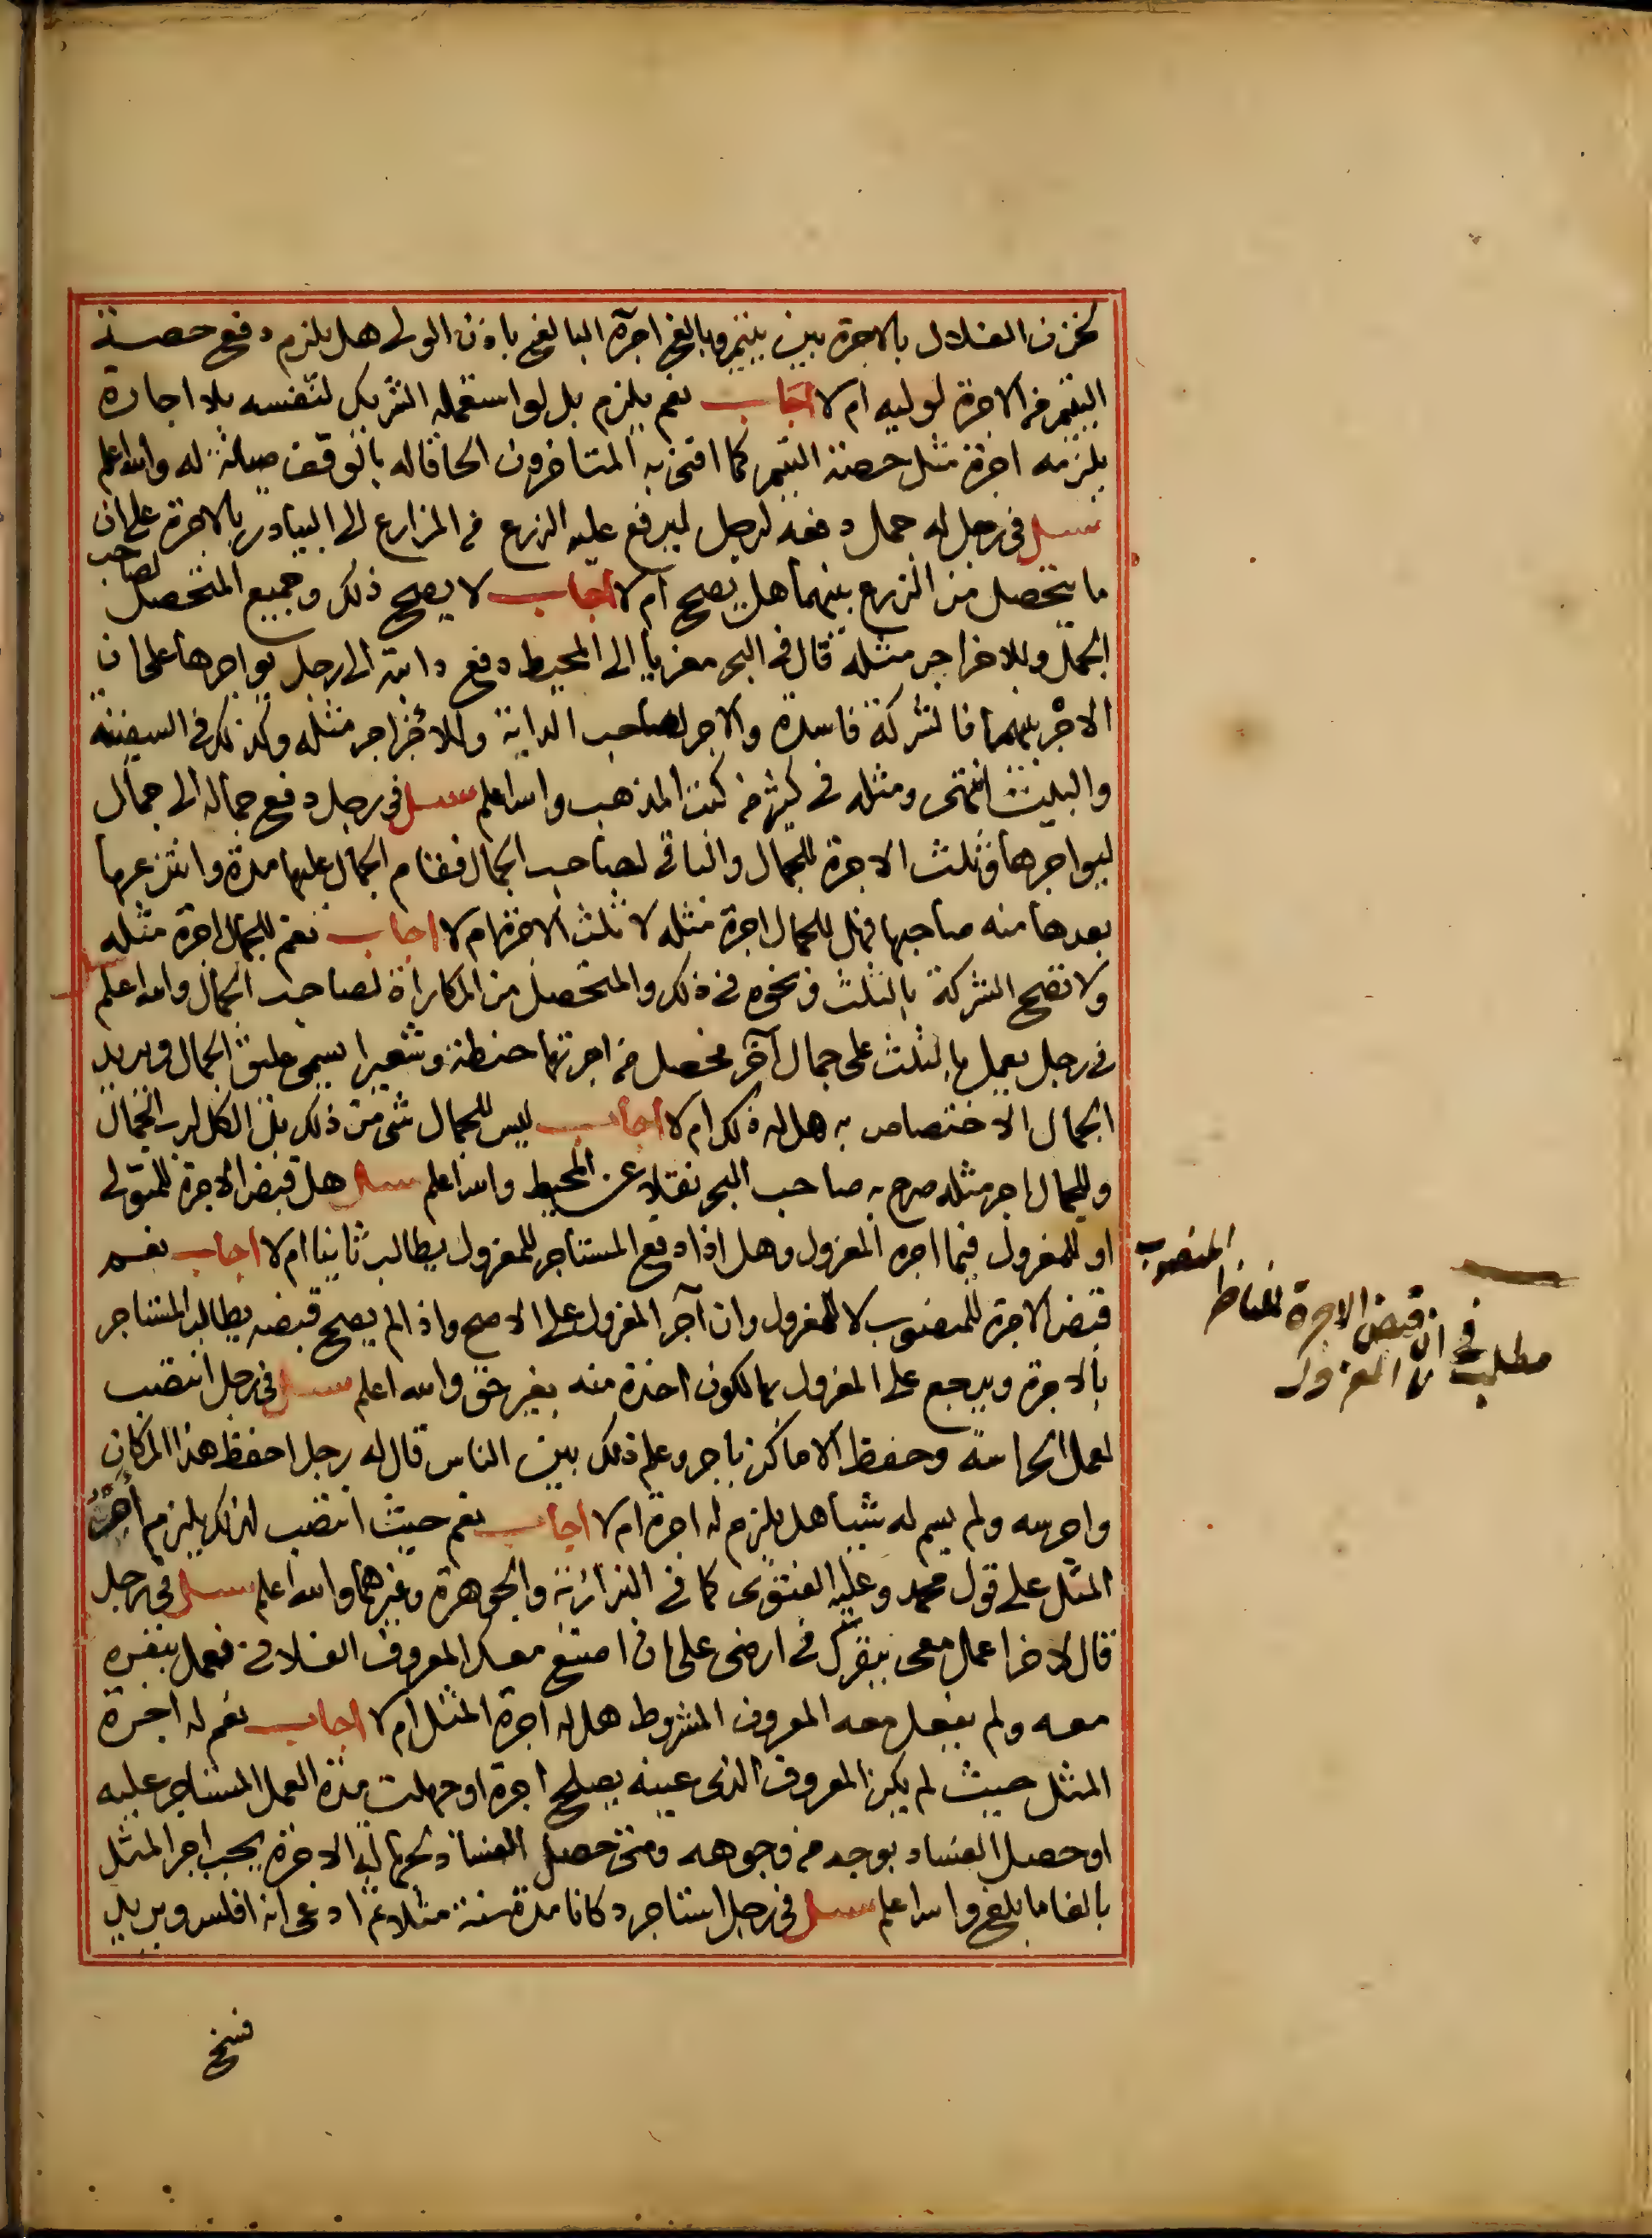 لخزن الغلال بالاجرة بين يتيم وبالغ اجرة البالغ باذن الولى هل يلزم دفع حصة
اليتيم من الاجرة لوليه ام لا اجاب نعم يلزم بل لو استعمله الشريك لنفسه بلا اجارة
يلزمه اجرة مثل حصة اليتيم كما افتى به المتاخرون الحاقا له بالوقف صيانة له والله اعلم
سئل فى رجل له جمل دفعه لرجل ليرفع عليه الزرع من المزارع الى البيادر بالاجرة على ان
ما يتحصل من الزرع بينهما هل يصح ام لا اجاب لا يصح ذلك وجميع المتحصل لصاحب
الجمل وللاخر اجر مثله قال فى البحر معزيا الى المحيط دفع دابته الى رجل يواجرها على ان
الاجر بينهما فالشركة فاسدة والاجر لصاحب الدابة وللاخر اجر مثله وكذلك فى السفينة
والبيت انتهى ومثله فى كثير من كتب المذهب والله اعلم سئل فى رجل دفع جماله الى جمال
ليواجرها وثلث الاجرة للجمال والباقى لصاحب الجمال فقام الجمال عليها مدة وانتزعها
بعدها منه صاحبها فهل للجمال اجرة مثله لا ثلث الاجرة ام لا اجاب نعم للجمال اجرة مثله
ولا تصح الشركة بالثلث ونحوه فى ذلك والمتحصل من المكاراة لصاحب الجمال والله اعلم سئل
فى رجل يعمل بالثلث على جمال آخر فحصل من اجرتها حنطة وشعيرا يسمى عليق الجمال ويريد
الجمال الاختصاص به هل له ذلك ام لا اجاب ليس للجمال شى من ذلك بل الكل لرب الجمال
وللجمال اجر مثله صرح به صاحب البحر نقلا عن المحيط والله اعلم سئل هل قبض الاجرة للمتولى
او للمعزول فيما اجره المعزول وهل اذا دفع المستاجر للمعزول يطالب ثانيا ام لا اجاب نعم
قبض الاجرة للمنصوب لا للمعزول وان آجر المعزول على الاصح واذا لم يصح قبضه يطالب المستاجر
بالاجرة ويرجع على المعزول بها لكون اخذه منه بغير حق والله اعلم سئل فى رجل انتصب
لعمل الحراسة وحفظ الاماكن باجر وعلم ذلك بين الناس قال له رجل احفظ هذا المكان
واحرسه ولم يسم له شيا هل يلزم له اجرة ام لا اجاب نعم حيث انتصب لذلك يلزم اجر
المثل على قول محمد وعليه الفتوى كما فى البزازية والجوهرة وغيرهما والله اعلم سئل فى رجل
قال لاخر اعمل معى ببقرك فى ارضى على ان اصنع معك المعروف الفلانى فعمل ببقره
معه ولم يفعل معه المعروف المشروط هل له اجرة المثل ام لا اجاب نعم له اجرة
المثل حيث لم يكن المعروف الذى عينه يصلح اجرة او جهلت مدة العمل المستاجر عليه
او حصل الفساد بوجه من وجوهه ومتى حصل الفساد بجهالة الاجرة يجب اجر المثل
بالغا ما بلغ والله اعلم سئل فى رجل استاجر دكانا مدة سنة مثلا ثم ادعى انه افلس ويريد
مطلب فى ان قبض الاجرة للناظر المنصوب
لا المعزول
فسخ